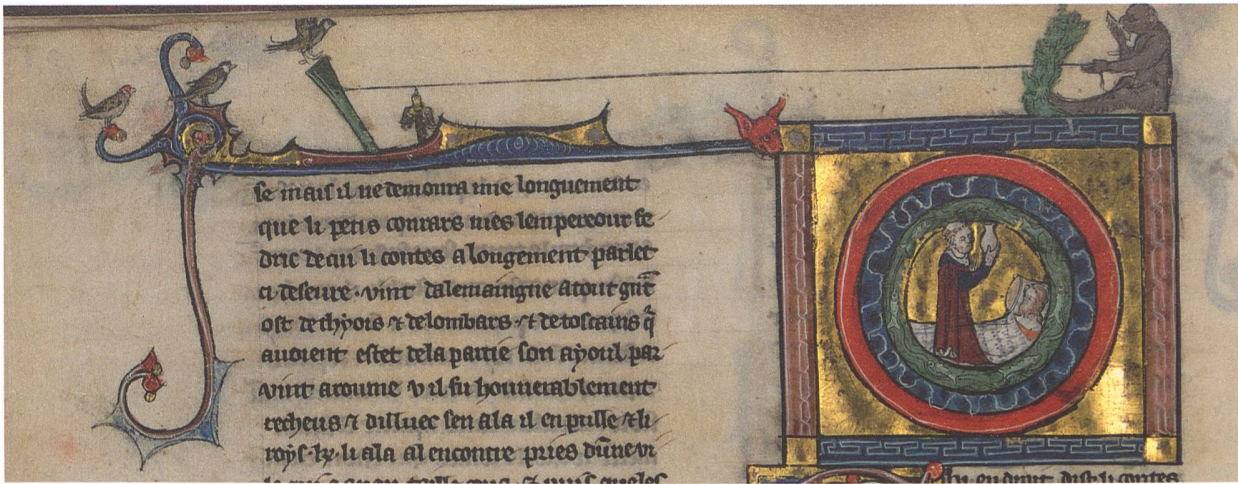 se mais il ne demoura mie longuement
que li petis conrars niés lempereour fe
dric de qui li contes a longement parlet
ci deseure . vint dalemaingne a tout gnt
ost de thyois ⁊ de lombars . ⁊ de toscains q̃
auoient estet de la partie son ayoul par
vint a roume v il fu hounerablement
recheus ⁊ dilluec sen ala il en puille ⁊ li
roys . ky . li ala al encontre pries dune vi
en droit dist li contes